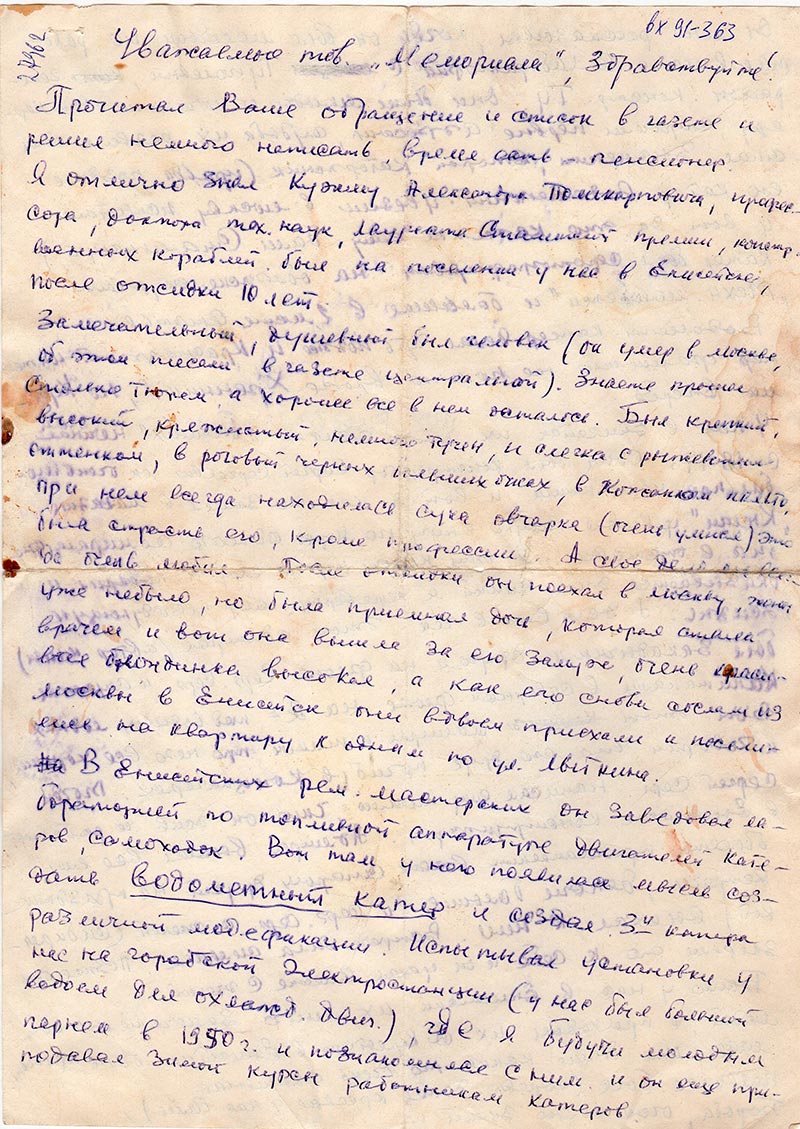 вх 91-363
24962
Уважаемые тов. „Мемориала“, Здравствуйте!
Прочитал Ваше обращение и список в газете и
решил немного написать, время есть пенсионер.
Я отлично знал Кузьму Александра Поликарповича, профес-
сора, доктора тех. наук, лауреата Сталинской премии, констр.
военных кораблей. был на поселении у нас в Енисейске,
после отсидки 10 лет.
Замечательный, душевный был человек (он умер в Москве,
об этом писали в газете центральной). Знаете прошел
столько тюрем, а хорошее все в нем осталось. Был крепкий,
высокий, кряжистый, немного тучен, и слегка с рыжеватым
оттенком, в роговых черных больших очках, в кожаном пальто,
при нем всегда находилась сука овчарка (очень умная) Это
была страсть его, кроме профессии. А свое дело он
очень любил. После отсидки он поехал в Москву, жены
уже небыло, но была приемная дочь, которая стала
врачем и вот она вышла за его замуж, очень краси-
вая блондинка высокая, а как его снова сослали из
Москвы в Енисейск они вдвоем приехали и посели-
лись на квартиру к одним по ул. Лыткина.
В Енисейских рем. мастерских он заведовал ла-
бораторией по топливной аппаратуре двигателей кате-
ров, самоходок. Вот там у него появилась мысль соз-
дать водометный катер и создал 3и катера
различной модефикации. Испытывал установки у
нас на городской электростанции (у нас был большой
водоем для охлажд. двиг.), где я будучи молодым
парнем в 1950 г. и познакомился с ним. и он еще пре-
подавал зимой курсы работникам катеров.